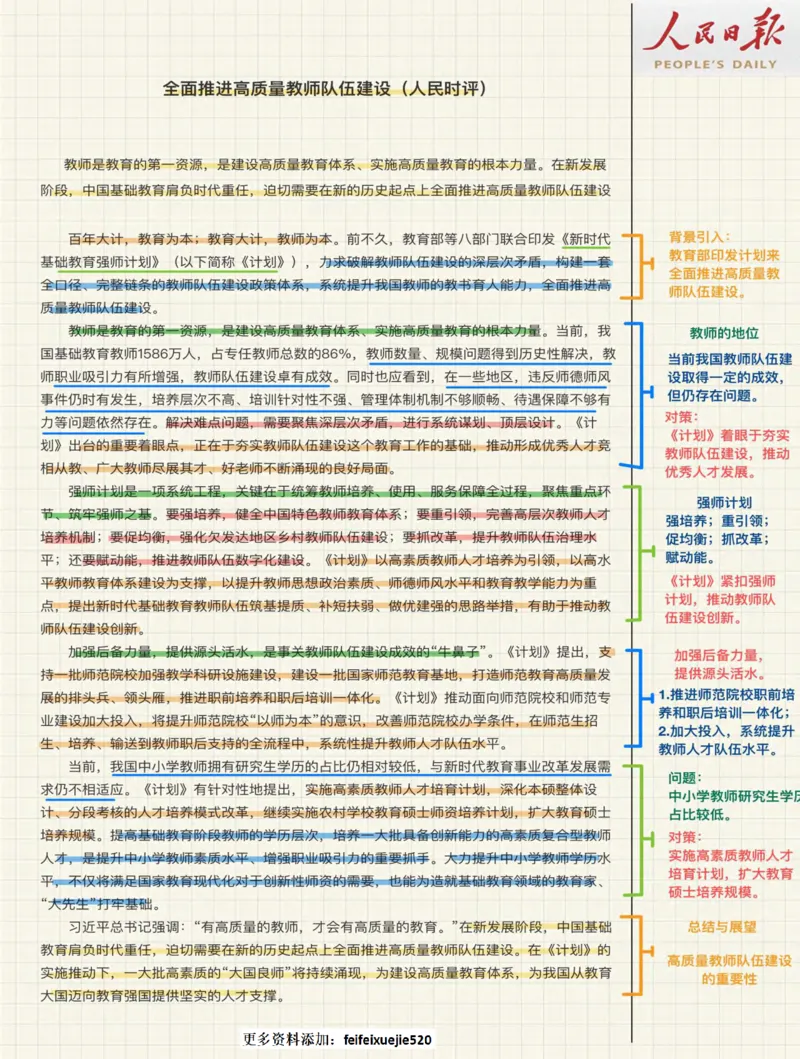 人民日报
PEOPLE'S DAILY
全面推进高质量教师队伍建设（人民时评）
教师是教育的第一资源，是建设高质量教育体系、实施高质量教育的根本力量。在新发展
阶段，中国基础教育肩负时代重任，迫切需要在新的历史起点上全面推进高质量教师队伍建设
百年大计，教育为本；教育大计，教师为本。前不久，教育部等八部门联合印发《新时代
基础教育强师计划》（以下简称《计划》），力求破解教师队伍建设的深层次矛盾，构建一套
全口径、完整链条的教师队伍建设政策体系，系统提升我国教师的教书育人能力，全面推进高
质量教师队伍建设。
教师是教育的第一资源，是建设高质量教育体系、实施高质量教育的根本力量。当前，我
国基础教育教师1586万人，占专任教师总数的86%，教师数量、规模问题得到历史性解决，教
师职业吸引力有所增强，教师队伍建设卓有成效。同时也应看到，在一些地区，违反师德师风
事件仍时有发生，培养层次不高、培训针对性不强、管理体制机制不够顺畅、待遇保障不够有
力等问题依然存在。解决难点问题，需要聚焦深层次矛盾，进行系统谋划、顶层设计。《计
划》出台的重要着眼点，正在于夯实教师队伍建设这个教育工作的基础，推动形成优秀人才竞
相从教、广大教师尽展其才、好老师不断涌现的良好局面。
强师计划是一项系统工程，关键在于统筹教师培养、使用、服务保障全过程，聚焦重点环
节、筑牢强师之基。要强培养，健全中国特色教师教育体系；要重引领，完善高层次教师人才
培养机制；要促均衡，强化欠发达地区乡村教师队伍建设；要抓改革，提升教师队伍治理水
平；还要赋动能，推进教师队伍数字化建设。《计划》以高素质教师人才培养为引领，以高水
平教师教育体系建设为支撑，以提升教师思想政治素质、师德师风水平和教育教学能力为重
点，提出新时代基础教育教师队伍筑基提质、补短扶弱、做优建强的思路举措，有助于推动教
师队伍建设创新。
加强后备力量，提供源头活水，是事关教师队伍建设成效的“牛鼻子”。《计划》提出，支
持一批师范院校加强教学科研设施建设，建设一批国家师范教育基地，打造师范教育高质量发
展的排头兵、领头雁，推进职前培养和职后培训一体化。《计划》推动面向师范院校和师范专
业建设加大投入，将提升师范院校“以师为本”的意识，改善师范院校办学条件，在师范生招
生、培养、输送到教师职后支持的全流程中，系统性提升教师人才队伍水平。
当前，我国中小学教师拥有研究生学历的占比仍相对较低，与新时代教育事业改革发展需
求仍不相适应。《计划》有针对性地提出，实施高素质教师人才培育计划，深化本硕整体设
计、分段考核的人才培养模式改革，继续实施农村学校教育硕士师资培养计划，扩大教育硕士
培养规模。提高基础教育阶段教师的学历层次，培养一大批具备创新能力的高素质复合型教师
人才，是提升中小学教师素质水平、增强职业吸引力的重要抓手。大力提升中小学教师学历水
平，不仅将满足国家教育现代化对于创新性师资的需要，也能为造就基础教育领域的教育家、
“大先生”打牢基础。
习近平总书记强调：“有高质量的教师，才会有高质量的教育。”在新发展阶段，中国基础
教育肩负时代重任，迫切需要在新的历史起点上全面推进高质量教师队伍建设。在《计划》的
实施推动下，一大批高素质的“大国良师”将持续涌现，为建设高质量教育体系，为我国从教育
大国迈向教育强国提供坚实的人才支撑。
背景引入：
教育部印发计划来
全面推进高质量教
师队伍建设。
教师的地位
当前我国教师队伍建
设取得一定的成效，
但仍存在问题。
对策：
《计划》着眼于夯实
教师队伍建设，推动
优秀人才发展。
强师计划
强培养；重引领；
促均衡；抓改革；
赋动能。
《计划》紧扣强师
计划，推动教师队
伍建设创新。
加强后备力量，
提供源头活水。
1.推进师范院校职前培
养和职后培训一体化；
2.加大投入，系统提升
教师人才队伍水平。
问题：
中小学教师研究生学历
占比较低。
对策：
实施高素质教师人才
培育计划，扩大教育
硕士培养规模。
总结与展望
高质量教师队伍建设
的重要性
更多资料添加：feifeixuejie520